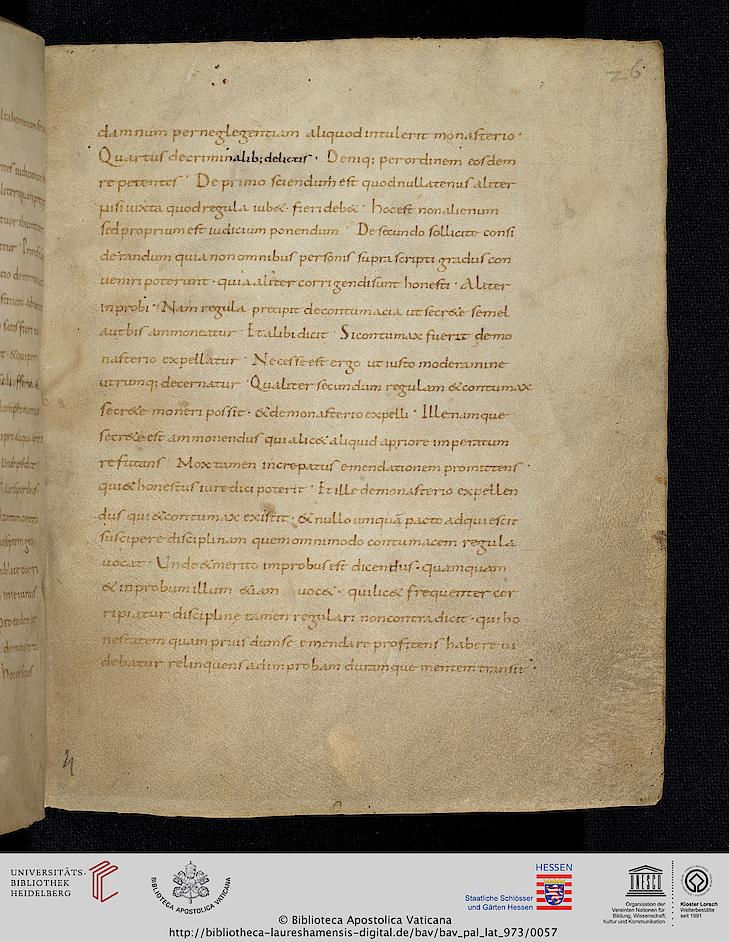 26
damnum perneglegentiam aliquod intulerit monasterio·
Quartus decriminalib; delictis· Deniq; perordinem eosdem
repetentes· De primo sciendum est quod nullatenus aliter
nisi iuxta quod regula iub& fieri deb&· hoc est non alienum
sed proprium est iudicium ponendum· De secundo sollicite consi
derandum quia non omnibus personis supra scripti gradus con
venire poterunt· quia aliter corrigendi sunt honesti· Aliter
inprobi· Nam regula precipit decontumacia ut secr&e semel
aut bis ammoneatur· Et alibi dicit· Si contumax fuerit de mo
nasterio expellatur· Necesse est ergo ut iusto moderamine
utrumq; decernatur· Qualiter secundum regulam &contumax
secr&e moneri possit· &demonasterio expelli· Ille namque
secr&e est ammonendus qui alic& aliquid apriore imperatum
refutans· Mox tamen increpatus emendationem promittens·
qui& honestus iure dici poterit· Et ille demonasterio expellen
dus qui &contumax existit· &nullo umquā pacto adquiescit
suscipere disciplinam quem omnimodo contumacem regula
vocat· Unde &merito improbus est dicendus· quamquam
&inprobum illum &iam voc&· qui lic& frequenter cor
ripiatur discipline tamen regulari non contradicit· qui ho
nestatem quam prius dum se emendare profitens habere vi
debatur relinquens ad improbam duramque mentem transiit·
UNIVERSITÄTS-
BIBLIOTHEK
HEIDELBERG
BIBLIOTECA APOSTOLICA VATICANA
HESSEN
Staatliche Schlösser
und Gärten Hessen
UNESCO
Organisation der
Vereinten Nationen für
Bildung, Wissenschaft,
Kultur und Kommunikation
Kloster Lorsch
Welterbestätte
seit 1991
© Biblioteca Apostolica Vaticana
http://bibliotheca-laureshamensis-digital.de/bav/bav_pal_lat_973/0057